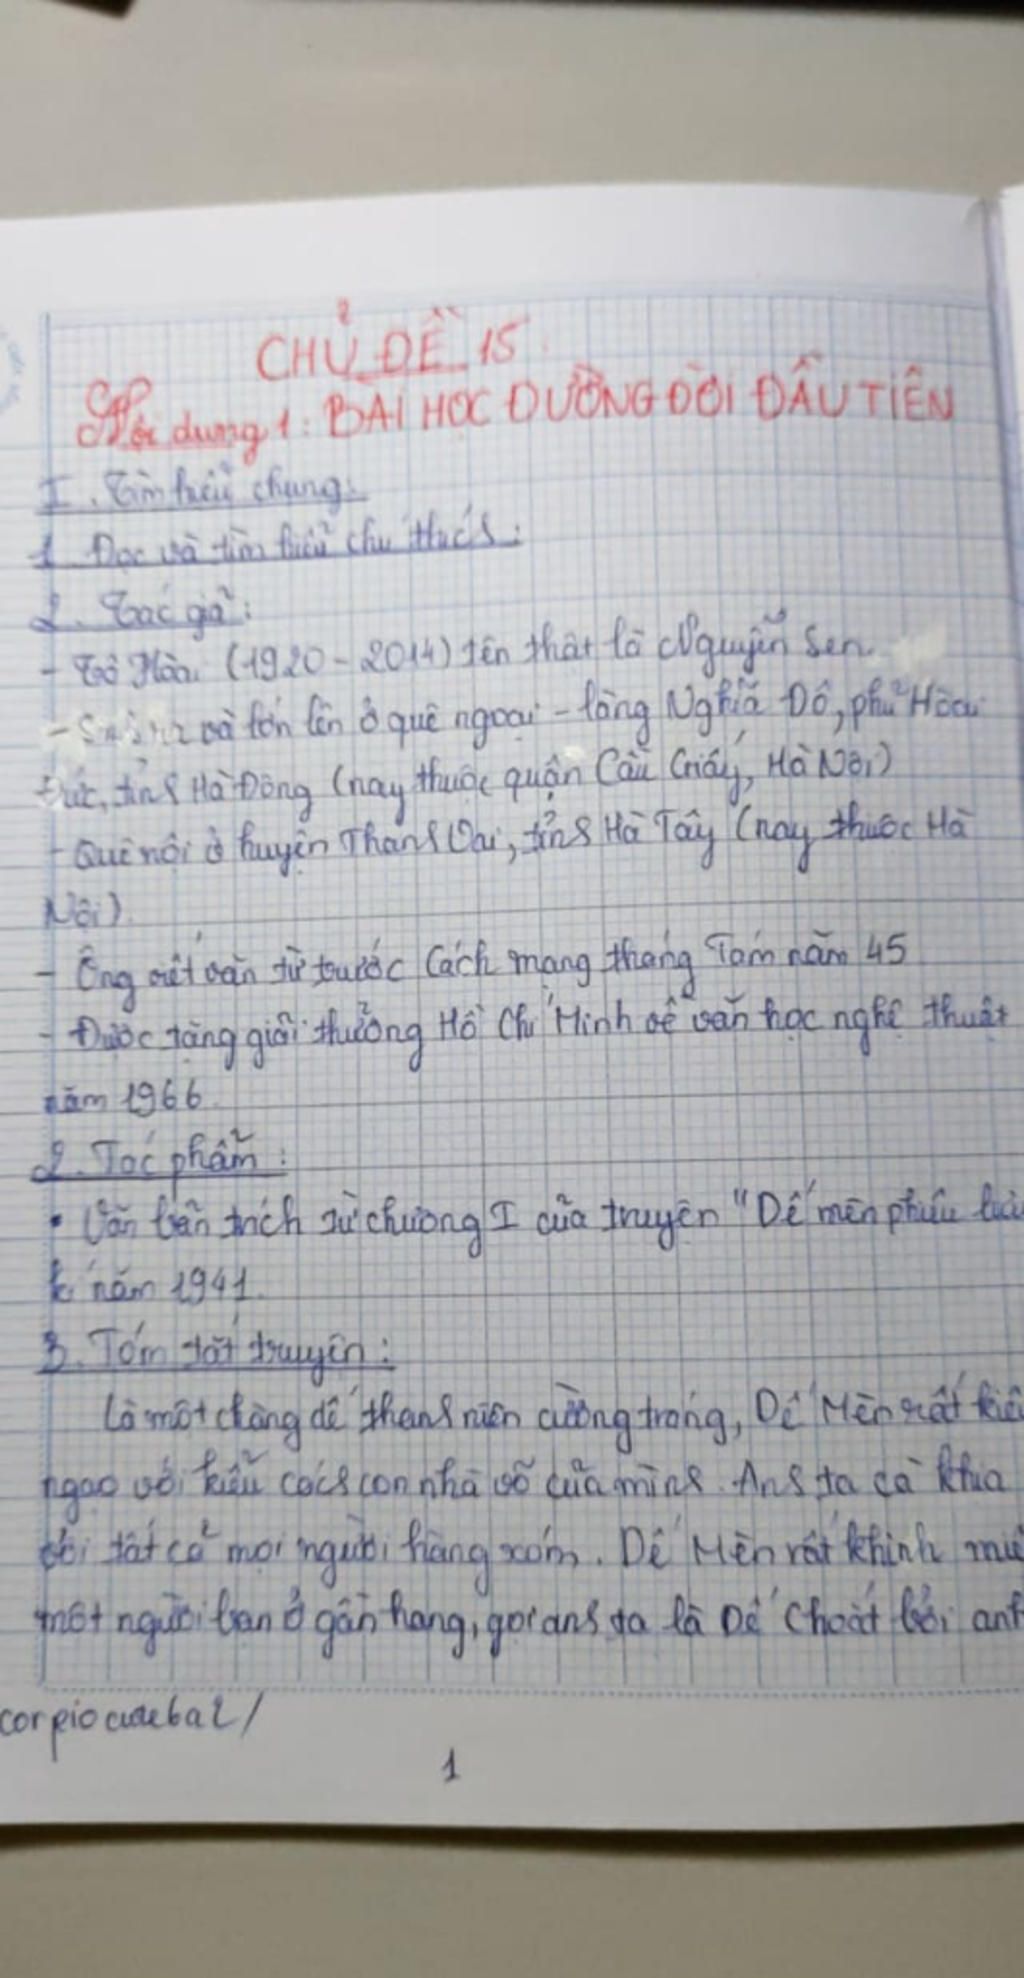 CHỦ ĐỀ 15.
Nội dung 1: BÀI HỌC ĐƯỜNG ĐỜI ĐẦU TIÊN
I. Tìm hiểu chung:
1. Đọc và tìm hiểu chú thích:
2. Tác giả:
- Tô Hoài (1920-2014) tên thật là Nguyễn Sen.
- Sinh ra và lớn lên ở quê ngoại - làng Nghĩa Đô, phủ Hoài
Đức, tỉnh Hà Đông (nay thuộc quận Cầu Giấy, Hà Nội)
- Quê nội ở huyện Thanh Oai, tỉnh Hà Tây (nay thuộc Hà
Nội).
- Ông viết văn từ trước Cách mạng tháng Tám năm 45
- Được tặng giải thưởng Hồ Chí Minh về văn học nghệ thuật
năm 1966.
2. Tác phẩm:
• Văn bản trích từ chương I của truyện "Dế mèn phiêu lưu
kí năm 1941.
3. Tóm tắt truyện:
Là một chàng dế thanh niên cường tráng, Dế Mèn rất kiêu
ngạo với kiểu cách con nhà võ của mình. Anh ta cà khịa
với tất cả mọi người hàng xóm. Dế Mèn rất khinh miệ
một người bạn ở gần hang, gọi anh ta là Dế Choắt bởi anh
1